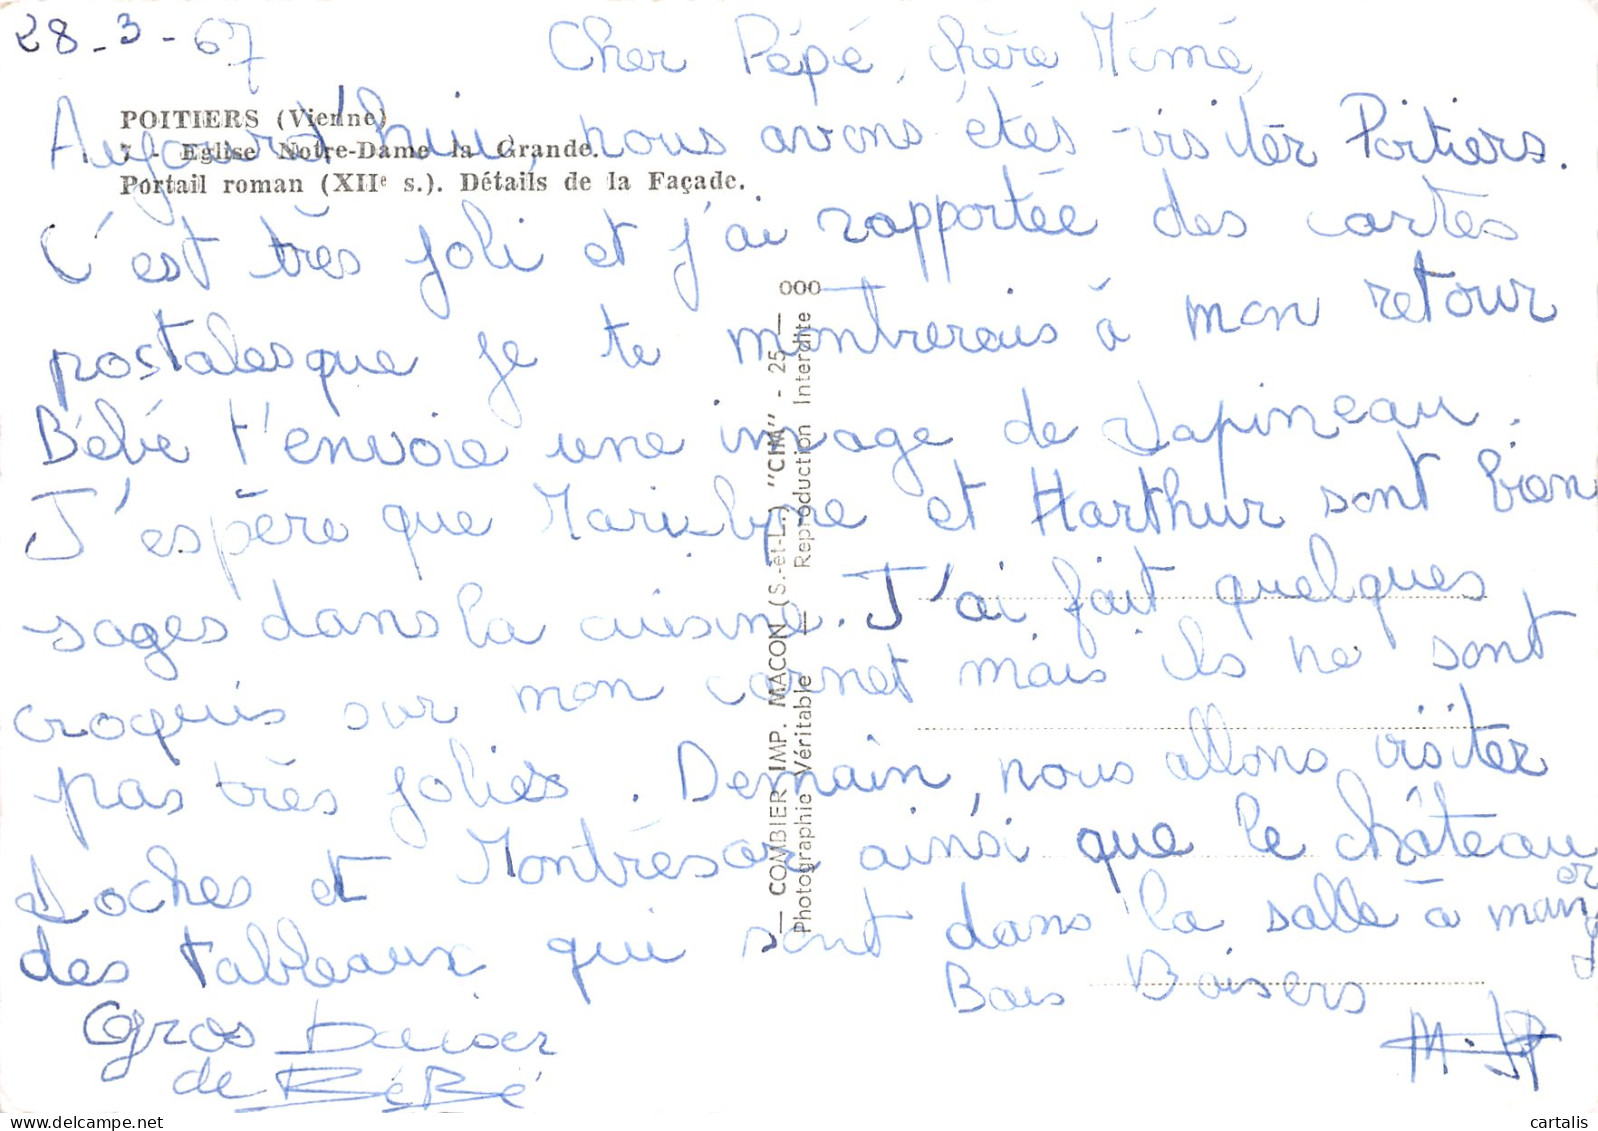 28-3-67
Cher Pépé, chère Mémé,
POITIERS (Vienne)
7 - Eglise Notre-Dame la Grande.
Portail roman (XIIe s.). Détails de la Façade.
Aujourd'hui, nous avons étés visiter Poitiers.
C'est très joli et j'ai rapportée des cartes
postales que je te montrerais à mon retour
Bébé t'envoie une image de Lapineau.
J'espère que et Harthur sont bien
sages dans la cuisine. J'ai fait quelques
croquis sur mon carnet mais ils ne sont
pas très jolies. Demain, nous allons visiter
Loches et Montrésor ainsi que le château
des tableaux qui sont dans la salle à manger
Bons Baisers
Gros Baiser
de BéBé
M. JP
— COMBIER IMP. MACON (S.-et-L.) "CIM" - 25 —
Photographie Véritable — Reproduction Interdite
000
cartalis